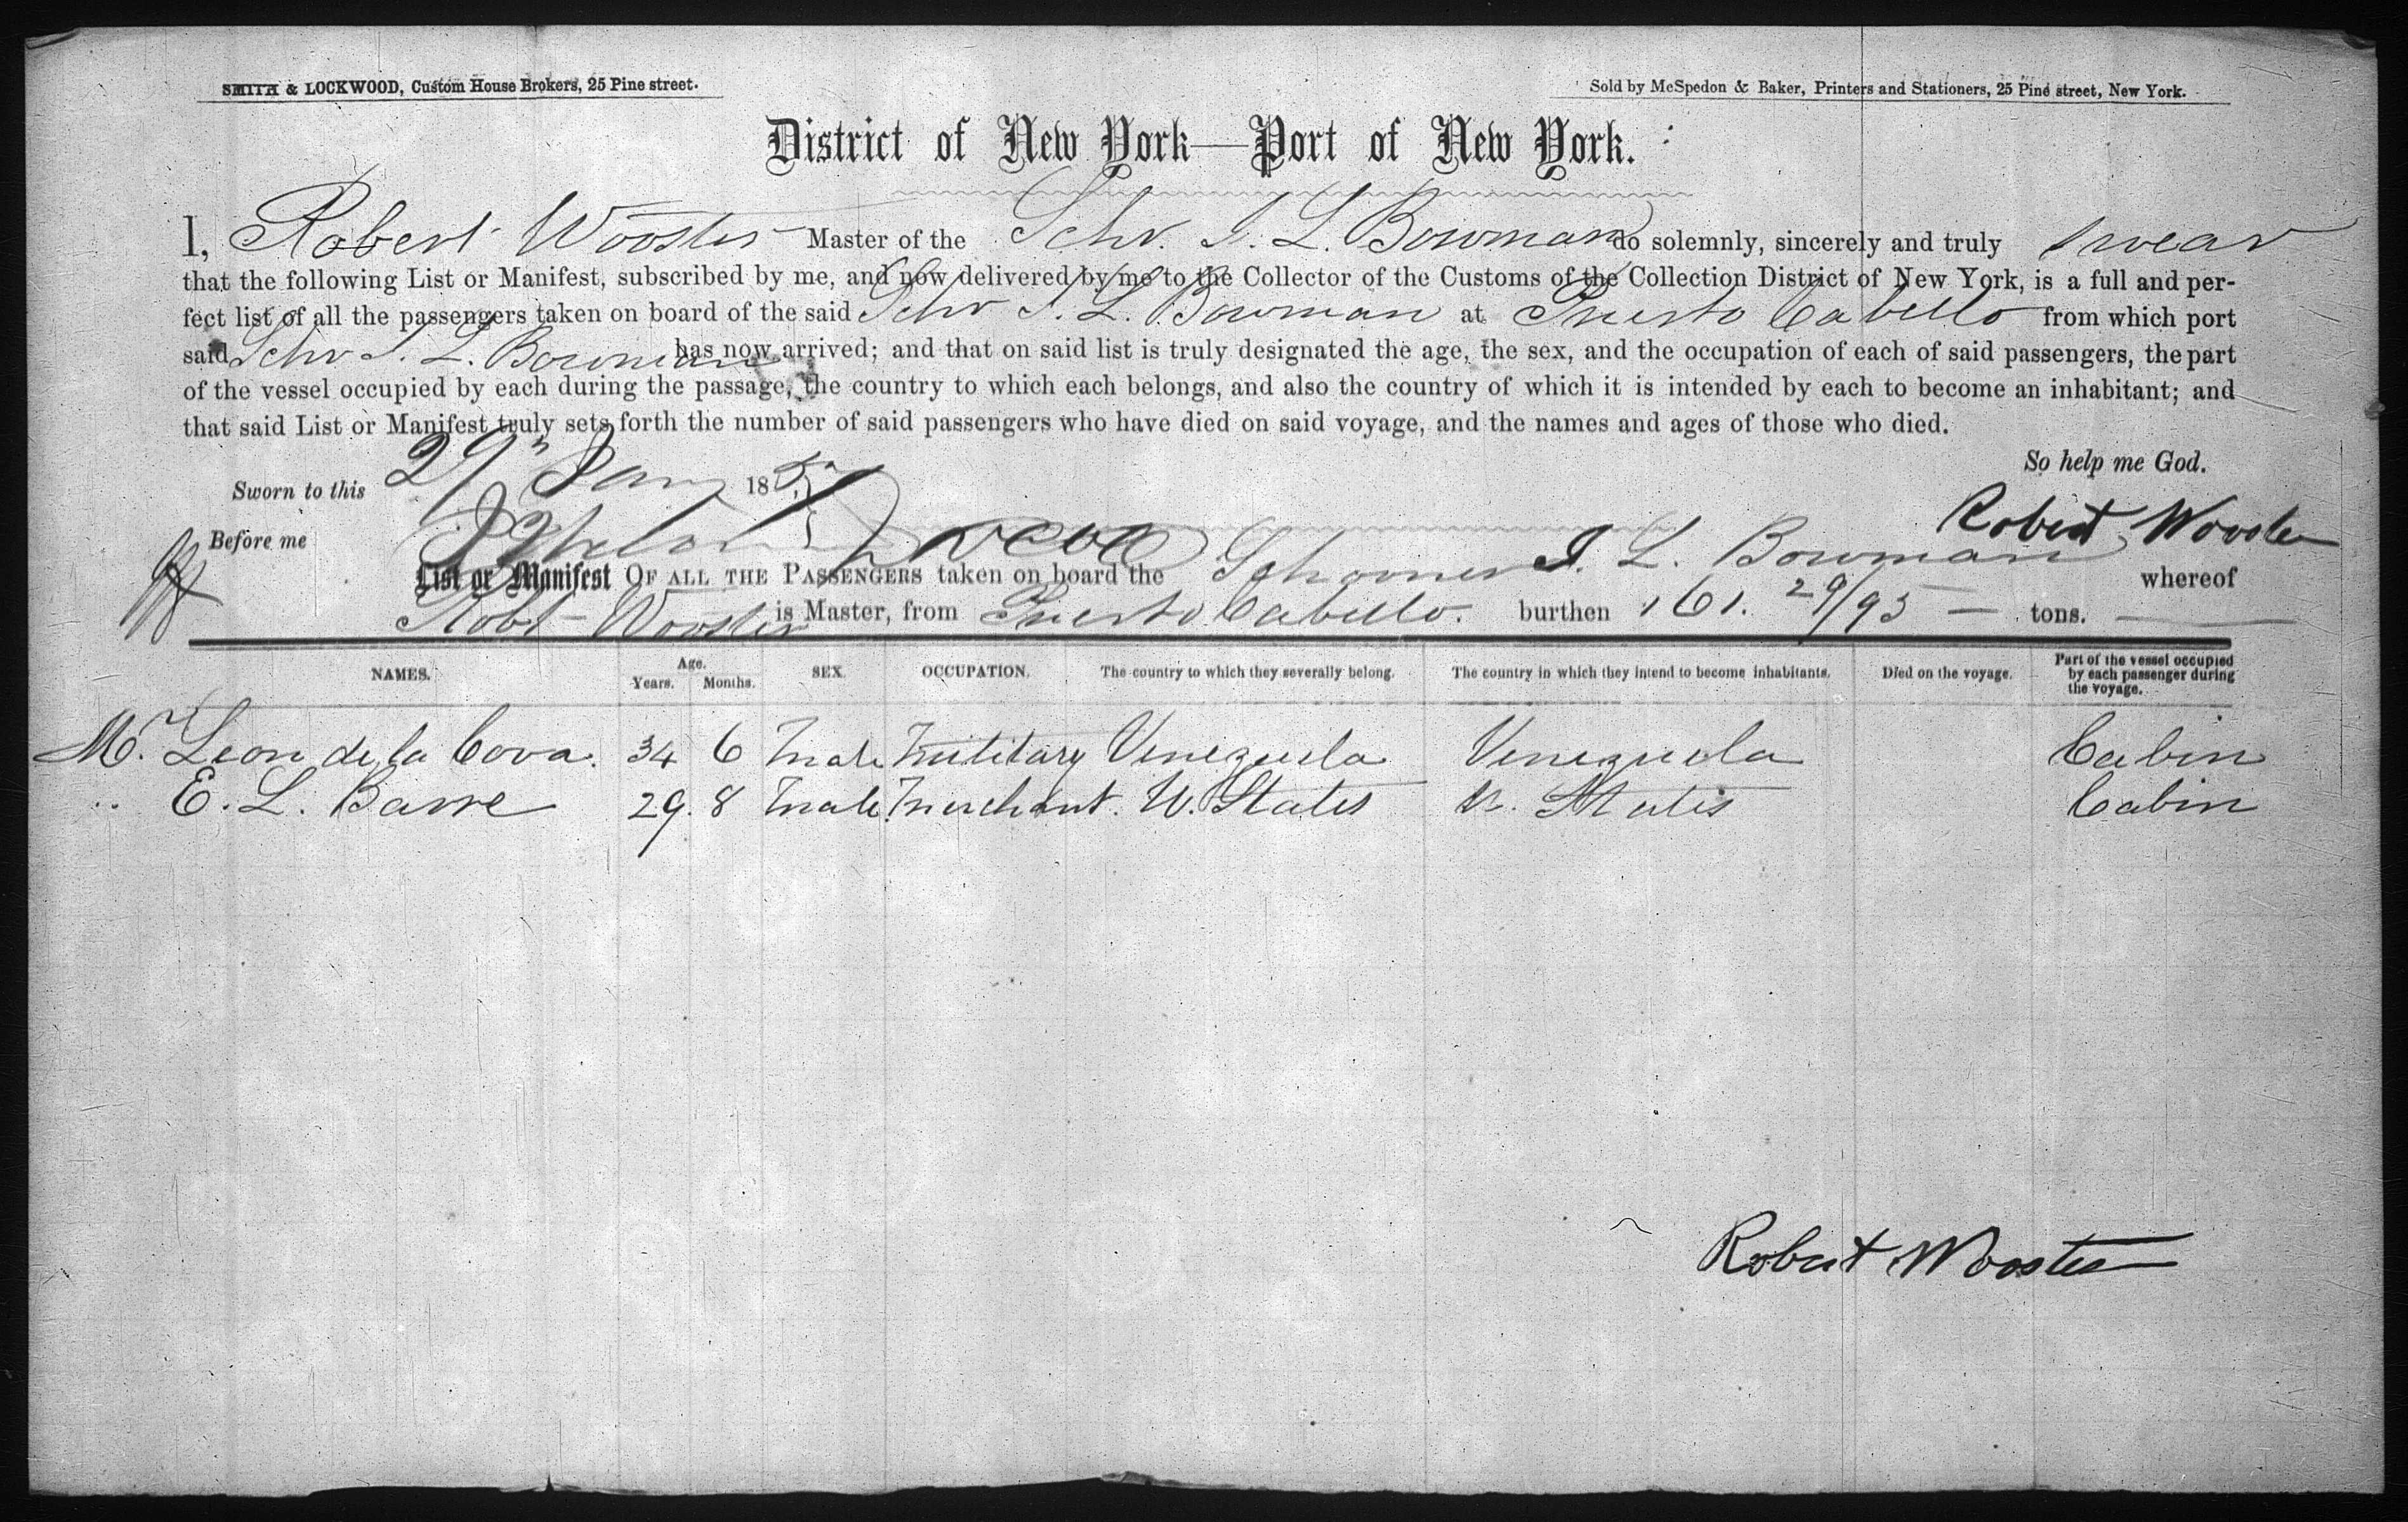 SMITH & LOCKWOOD, Custom House Brokers, 25 Pine street.
Sold by McSpedon & Baker, Printers and Stationers, 25 Pine street, New York.
District of New York—Port of New York.
I, Robert Wooster Master of the Schr. I. L. Bowman do solemnly, sincerely and truly swear
that the following List or Manifest, subscribed by me, and now delivered by me to the Collector of the Customs of the Collection District of New York, is a full and per-
fect list of all the passengers taken on board of the said Schr I. L. Bowman at Puerto Cabello from which port
said Schr I. L. Bowman has now arrived; and that on said list is truly designated the age, the sex, and the occupation of each of said passengers, the part
of the vessel occupied by each during the passage, the country to which each belongs, and also the country of which it is intended by each to become an inhabitant; and
that said List or Manifest truly sets forth the number of said passengers who have died on said voyage, and the names and ages of those who died.
So help me God.
Sworn to this 29th Jany 1857
Robert Wooster
Before me
List or Manifest OF ALL THE PASSENGERS taken on board the Schooner I. L. Bowman whereof
Robt Wooster is Master, from Puerto Cabello. burthen 161. 29/95 — tons.
NAMES. Age. Years. Months. SEX. OCCUPATION. The country to which they severally belong. The country in which they intend to become inhabitants. Died on the voyage. Part of the vessel occupied by each passenger during the voyage.
Mr. Leon de la Cova. 34 6 Male Military Venezuela Venezuela Cabin
" E. L. Barre 29. 8 Male. Merchant. U. States U. States Cabin
Robert Wooster